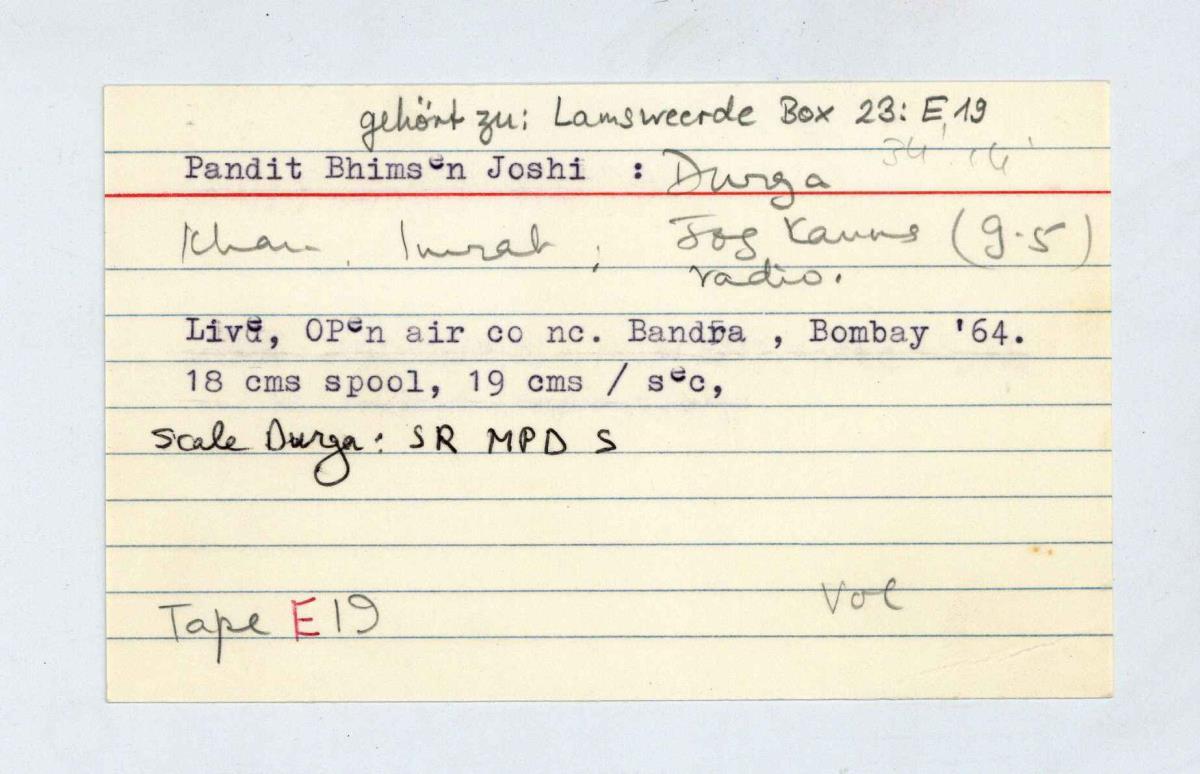 gehört zu: Lamsweerde Box 23: E 19
34' 14'
Pandit Bhimsen Joshi : Durga
Khan, Imrat; Jog Kauns (g.5)
radio.
Live, OPen air co nc. Bandra , Bombay '64.
18 cms spool, 19 cms / sec,
Scale Durga: SR MPD S
Vol
Tape E 19